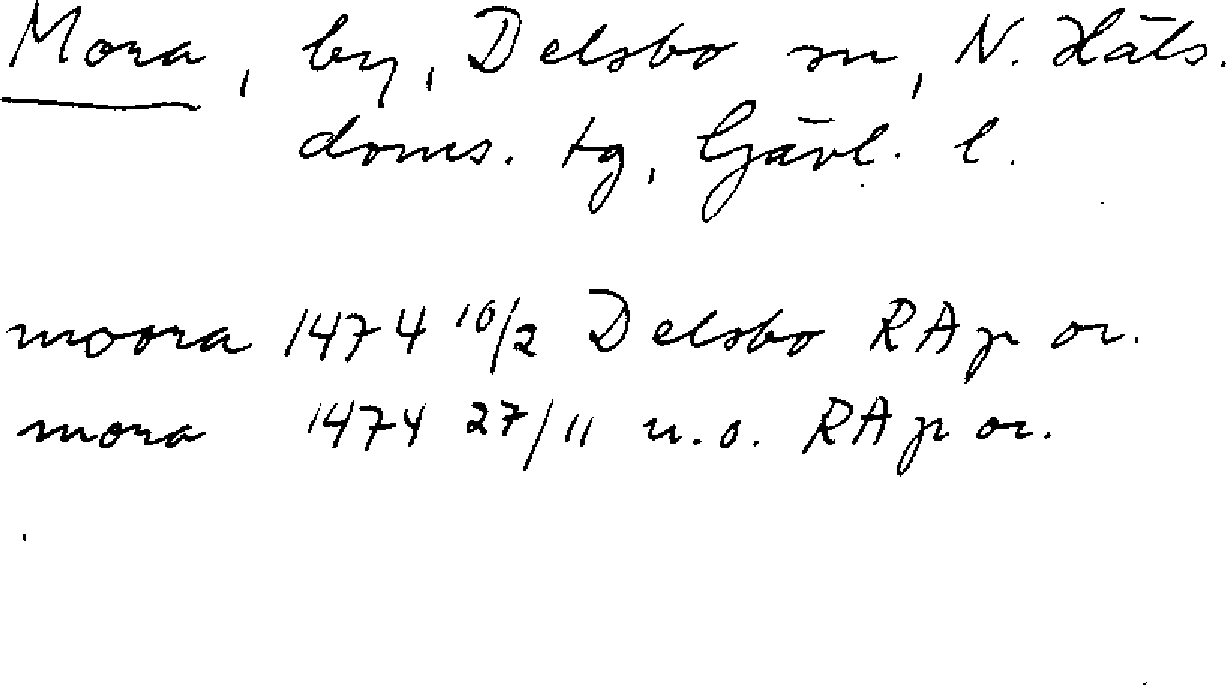 Mora, by, Delsbo sn, N. Häls.
doms. tg, Gävl. l.
moora 1474 10/2 Delsbo RAp or.
mora 1474 27/11 u.o. RAp or.